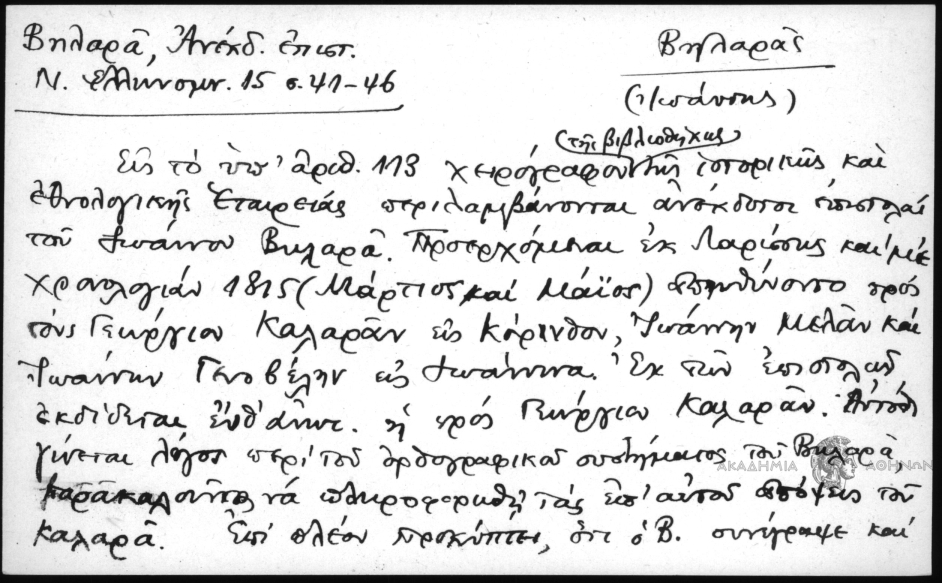 Βηλαρᾶ, Ἀνέκδ. ἐπιστ.
Ν. Ἑλληνομν. 15 σ. 41-46
Βηλαρᾶς
(Ἰωάννης)
(τῆς βιβλιοθήκης)
Εἰς τὸ ὑπ' ἀριθ. 113 χειρόγραφον τῆς ἱστορικῆς καὶ
ἐθνολογικῆς Ἑταιρείας περιλαμβάνονται ἀνέκδοτοι ἐπιστολαί
τοῦ Ἰωάννου Βηλαρᾶ. Προερχόμεναι ἐκ Λαρίσσης καί μέ
χρονολογίαν 1815 (Μάρτιος καί Μάϊος) ἀπηυθύνοντο πρός
τούς Γεώργιον Καλαρᾶν εἰς Κόρινθον, Ἰωάννην Μελᾶν καί
Ἰωάννην Γενοβέλην εἰς Ἰωάννινα. Ἐκ τῶν ἐπιστολῶν
ἐκδίδεται ἐνθ' ἀνωτ. ἡ πρός Γεώργιον Καλαρᾶν. Αὐτόθι
γίνεται λόγος περί τοῦ ὀρθογραφικοῦ συστήματος τοῦ Βηλαρᾶ,
παρακαλοῦντος νά πληροφορηθῇ τάς ἐπ' αὐτοῦ ἀπόψεις τοῦ
Καλαρᾶ. Ἐπί πλέον προκύπτει, ὅτι ὁ Β. συνέγραψε καί
ΑΚΑΔΗΜΙΑ ΑΘΗΝΩΝ